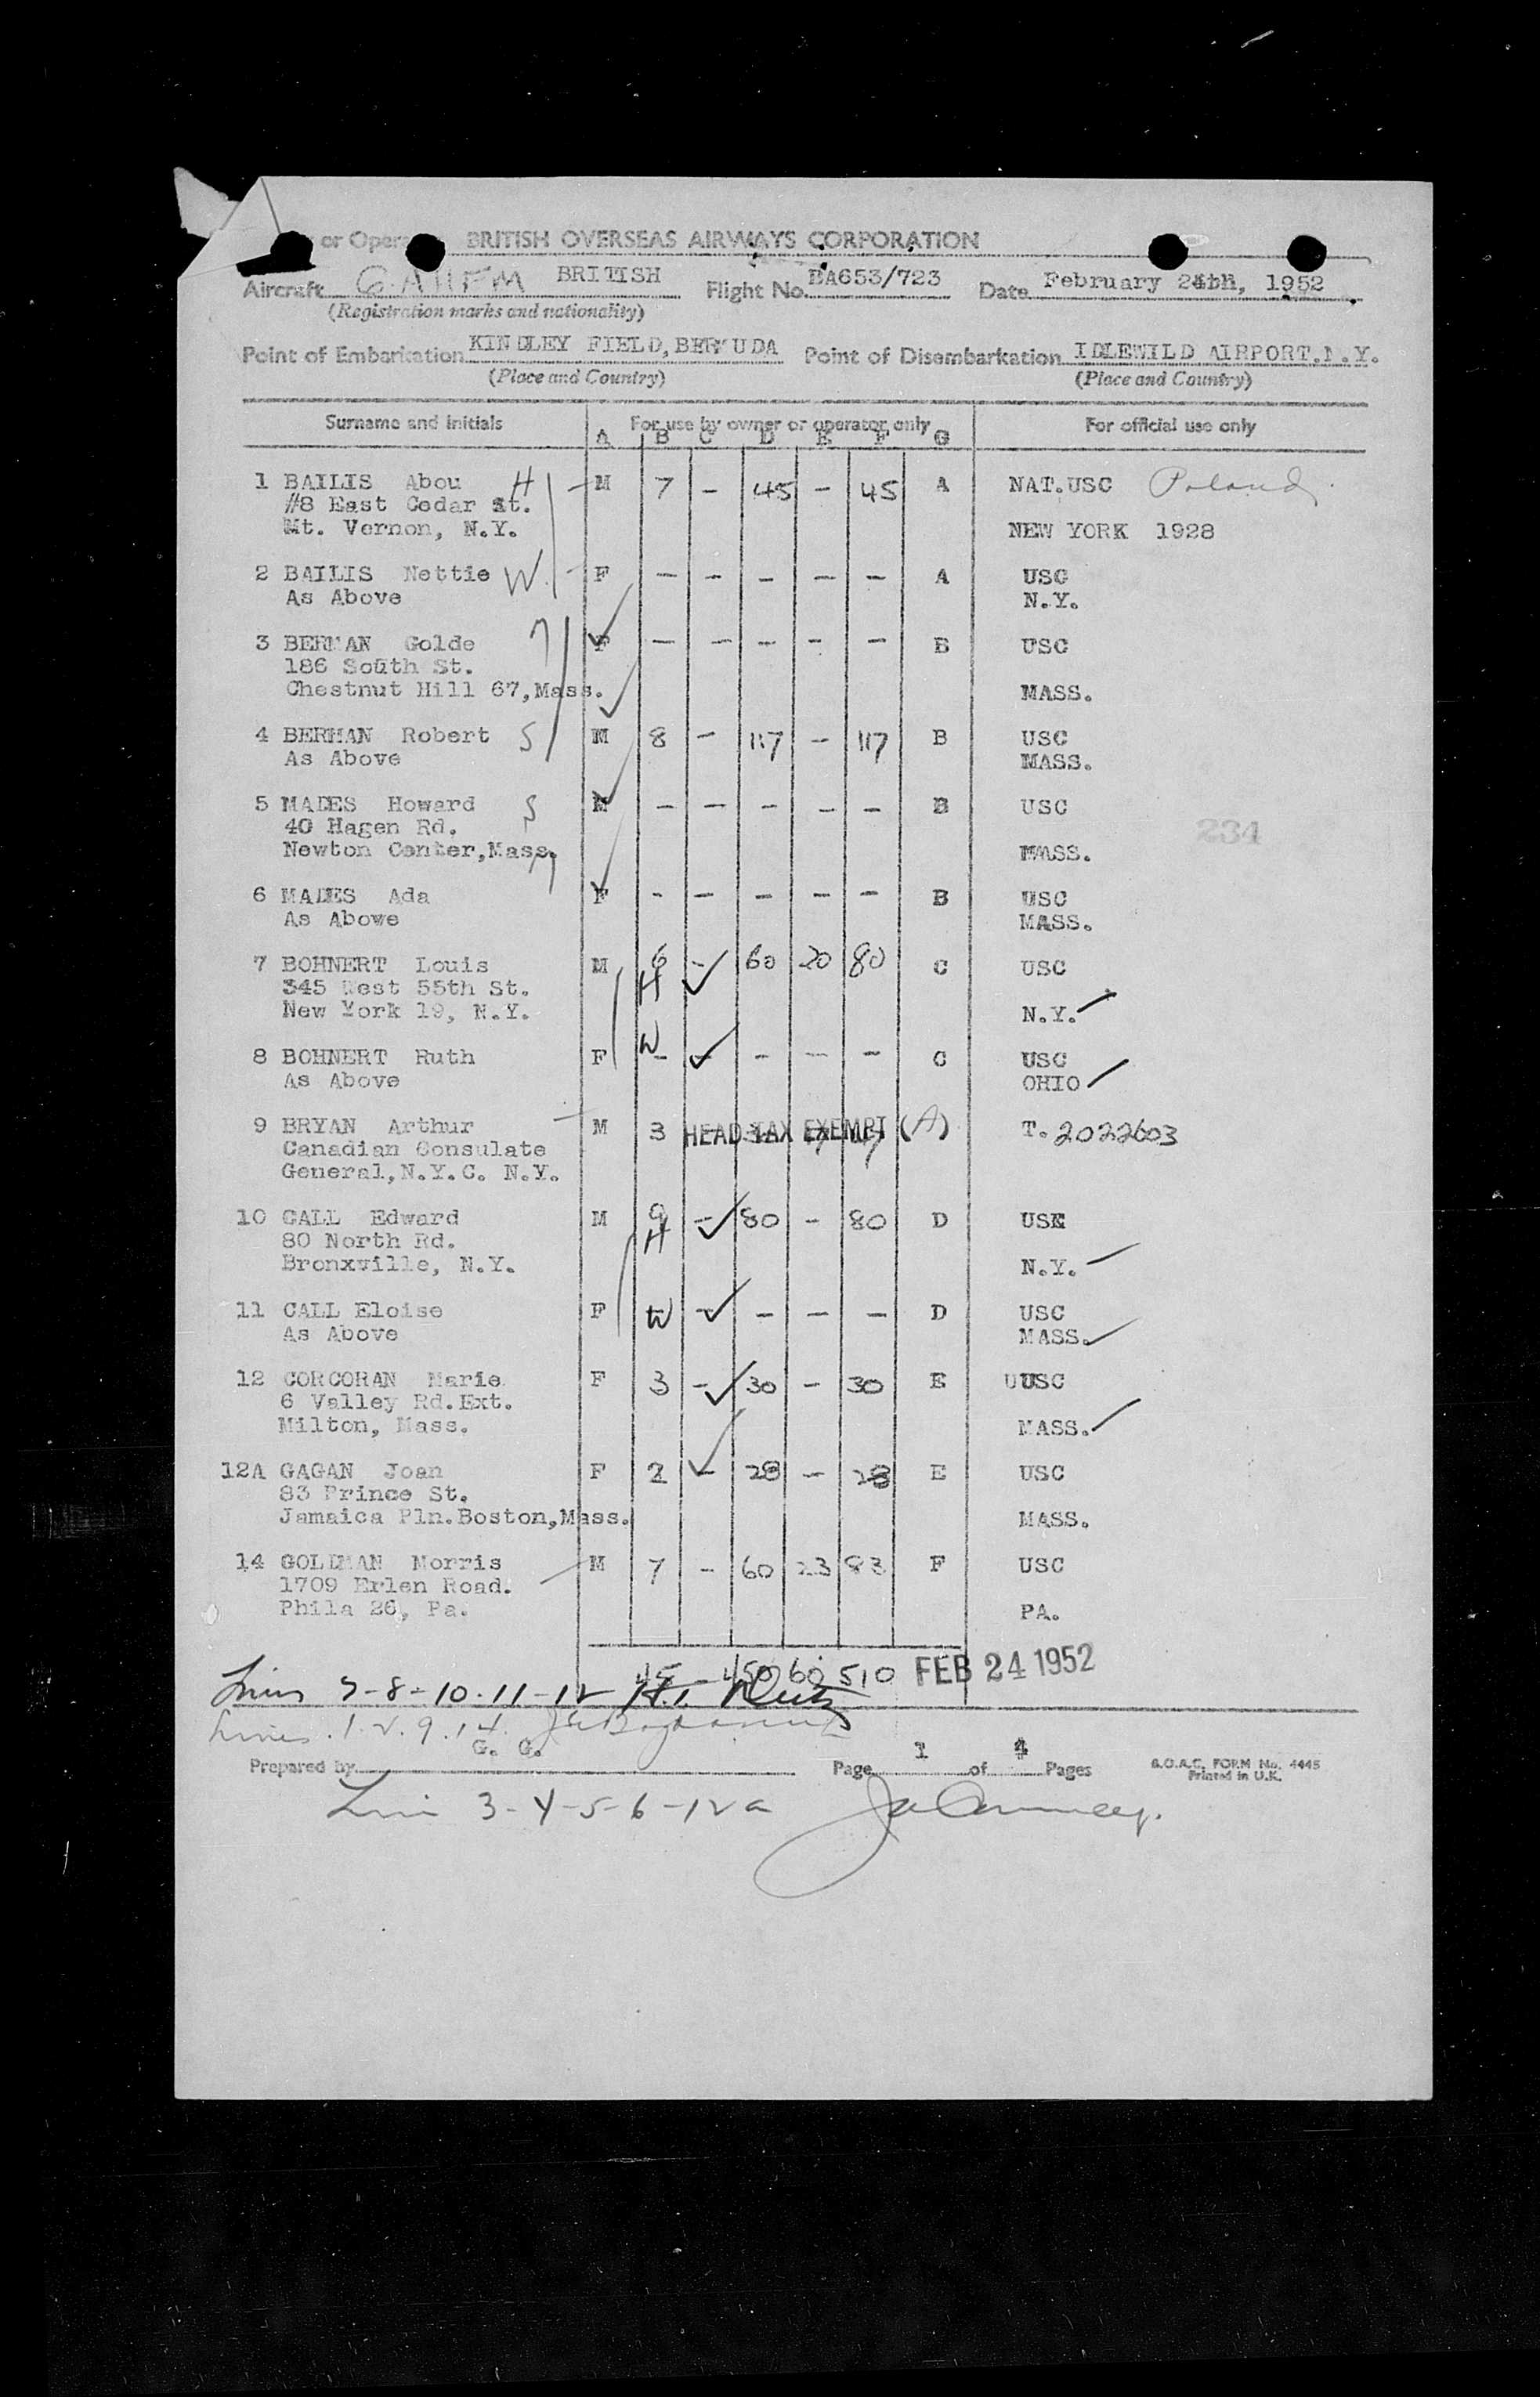 or Opera BRITISH OVERSEAS AIRWAYS CORPORATION
Aircraft G-AHFM BRITISH Flight No. BA653/723 Date February 24th, 1952
(Registration marks and nationality)
Point of Embarkation KINDLEY FIELD, BERMUDA Point of Disembarkation IDLEWILD AIRPORT.N.Y.
(Place and Country) (Place and Country)
Surname and initials For use by owner or operator only For official use only
A B C D E F G
1 BAILIS Abou H M 7 - 45 - 45 A NAT.USC Poland
#8 East Cedar St.
Mt. Vernon, N.Y. NEW YORK 1928
2 BAILIS Nettie W F - - - - - A USC
As Above N.Y.
3 BERMAN Golde F - - - - - B USC
186 South St.
Chestnut Hill 67,Mass. MASS.
4 BERMAN Robert S M 8 - 117 - 117 B USC
As Above MASS.
5 MADES Howard S M - - - - - B USC
40 Hagen Rd. 234
Newton Center,Mass. MASS.
6 MADES Ada F - - - - - B USC
As Above MASS.
7 BOHNERT Louis M 6 - 60 20 80 C USC
345 West 55th St. H
New York 19, N.Y. N.Y.
8 BOHNERT Ruth F W - - - - - C USC
As Above OHIO
9 BRYAN Arthur M 3 HEAD TAX EXEMPT (A) T. 2022603
Canadian Consulate
General,N.Y.C. N.Y.
10 CALL Edward M 9 - 80 - 80 D USC
80 North Rd. H
Bronxville, N.Y. N.Y.
11 CALL Eloise F W - - - - D USC
As Above MASS.
12 CORCORAN Marie F 3 - 30 - 30 E USC
6 Valley Rd.Ext.
Milton, Mass. MASS.
12A GAGAN Joan F 2 - 28 - 28 E USC
83 Prince St.
Jamaica Pln.Boston,Mass. MASS.
14 GOLDMAN Morris M 7 - 60 23 83 F USC
1709 Erlen Road.
Phila 26, Pa. PA.
45 - 450 60 510 FEB 24 1952
Lines 7-8-10-11-12
Lines 1.2.9.14.
G. G.
Prepared by Page 1 of 4 Pages B.O.A.C. FORM No. 4445
Printed in U.K.
Line 3-4-5-6-12a